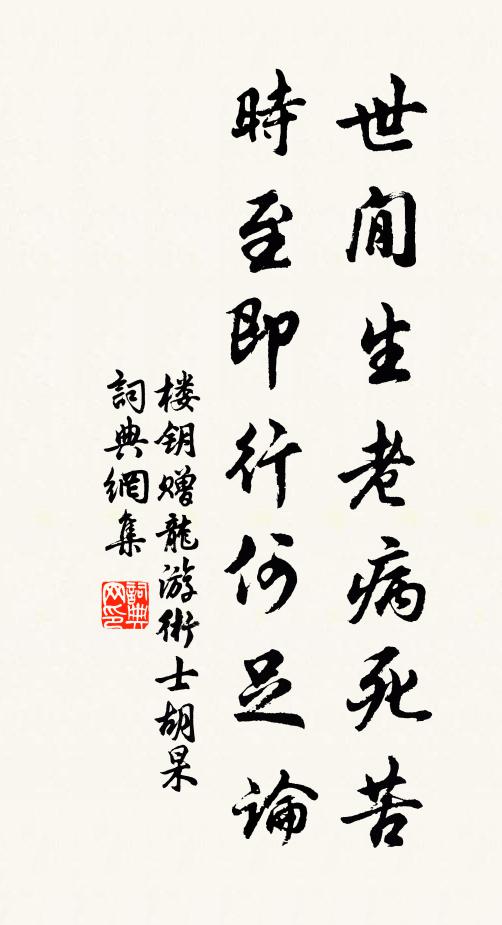 世間生老病死苦
時至即行何足論
楼钥赠龍游術士胡杲
詞典網集
詞典网印